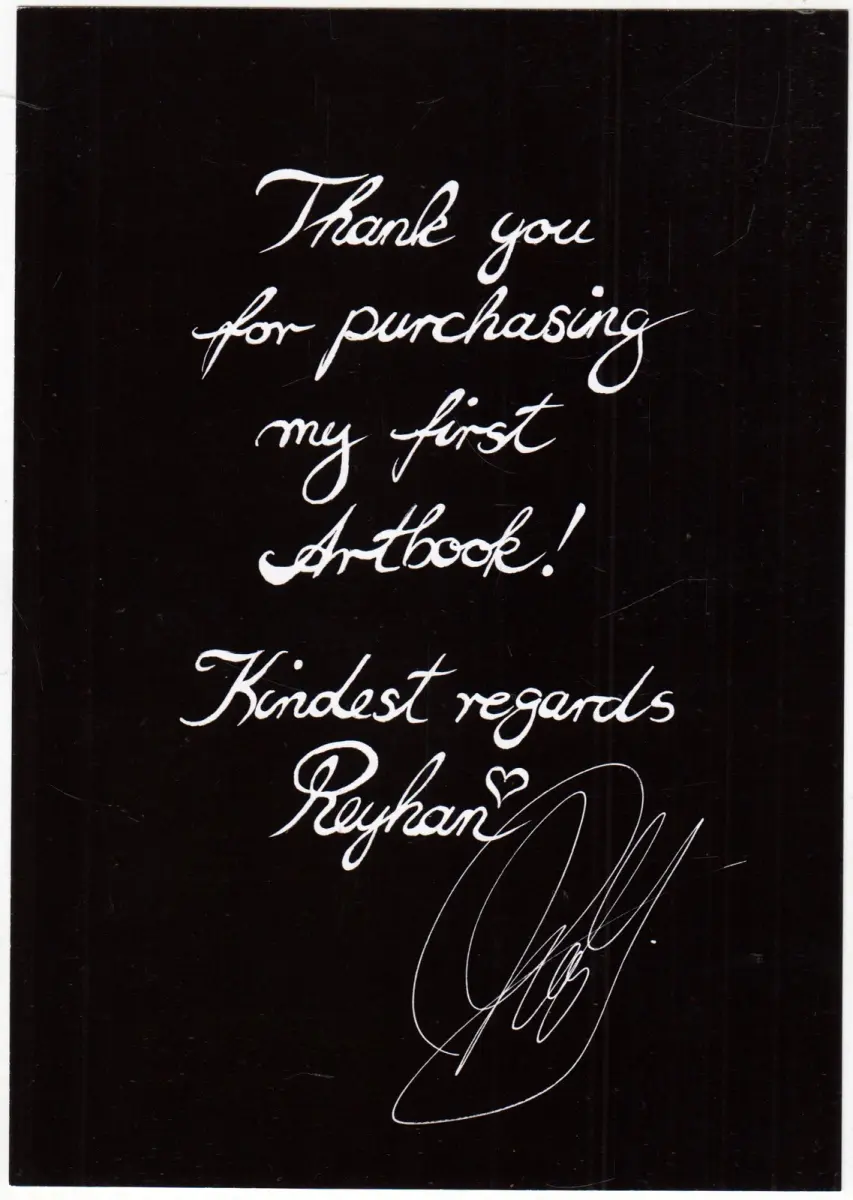 Thank you
for purchasing
my first
Artbook!
Kindest regards
Reyhan♡